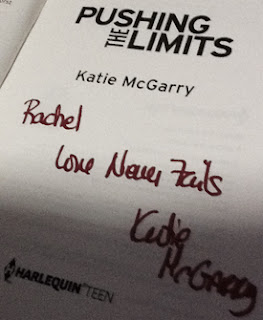 PUSHING
THE LIMITS
Katie McGarry
Rachel
Love Never Fails
Katie
McGarry
HARLEQUIN TEEN